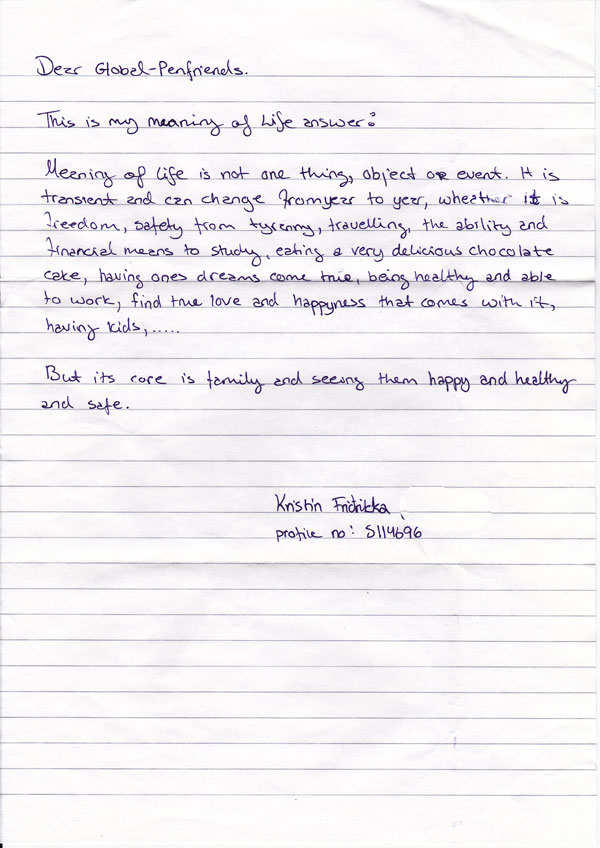 Dear Global-Penfriends.
This is my meaning of Life answer:
Meaning of life is not one thing, object or event. It is
transient and can change from year to year, wheather it is
freedom, safety from tyranny, travelling, the ability and
financial means to study, eating a very delicious chocolate
cake, having ones dreams come true, being healthy and able
to work, find true love and happyness that comes with it,
having kids,.....
But its core is family and seeing them happy and healthy
and safe.
Kristin Fridrikka
profile no: S114696